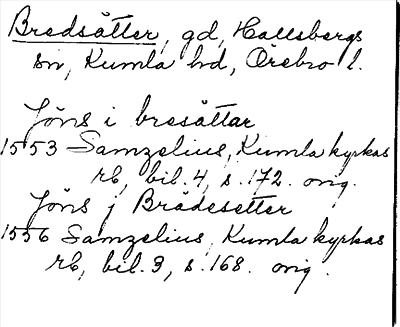 Bredsätter, gd, Hallsbergs
sn, Kumla hd, Örebro l.
Jöns i bresättar
1553 Samzelius, Kumla kyrkas
rb, bil. 4, s. 172. orig.
Jöns j Brädesetter
1556 Samzelius, Kumla kyrkas
rb, bil. 3, s. 168. orig.